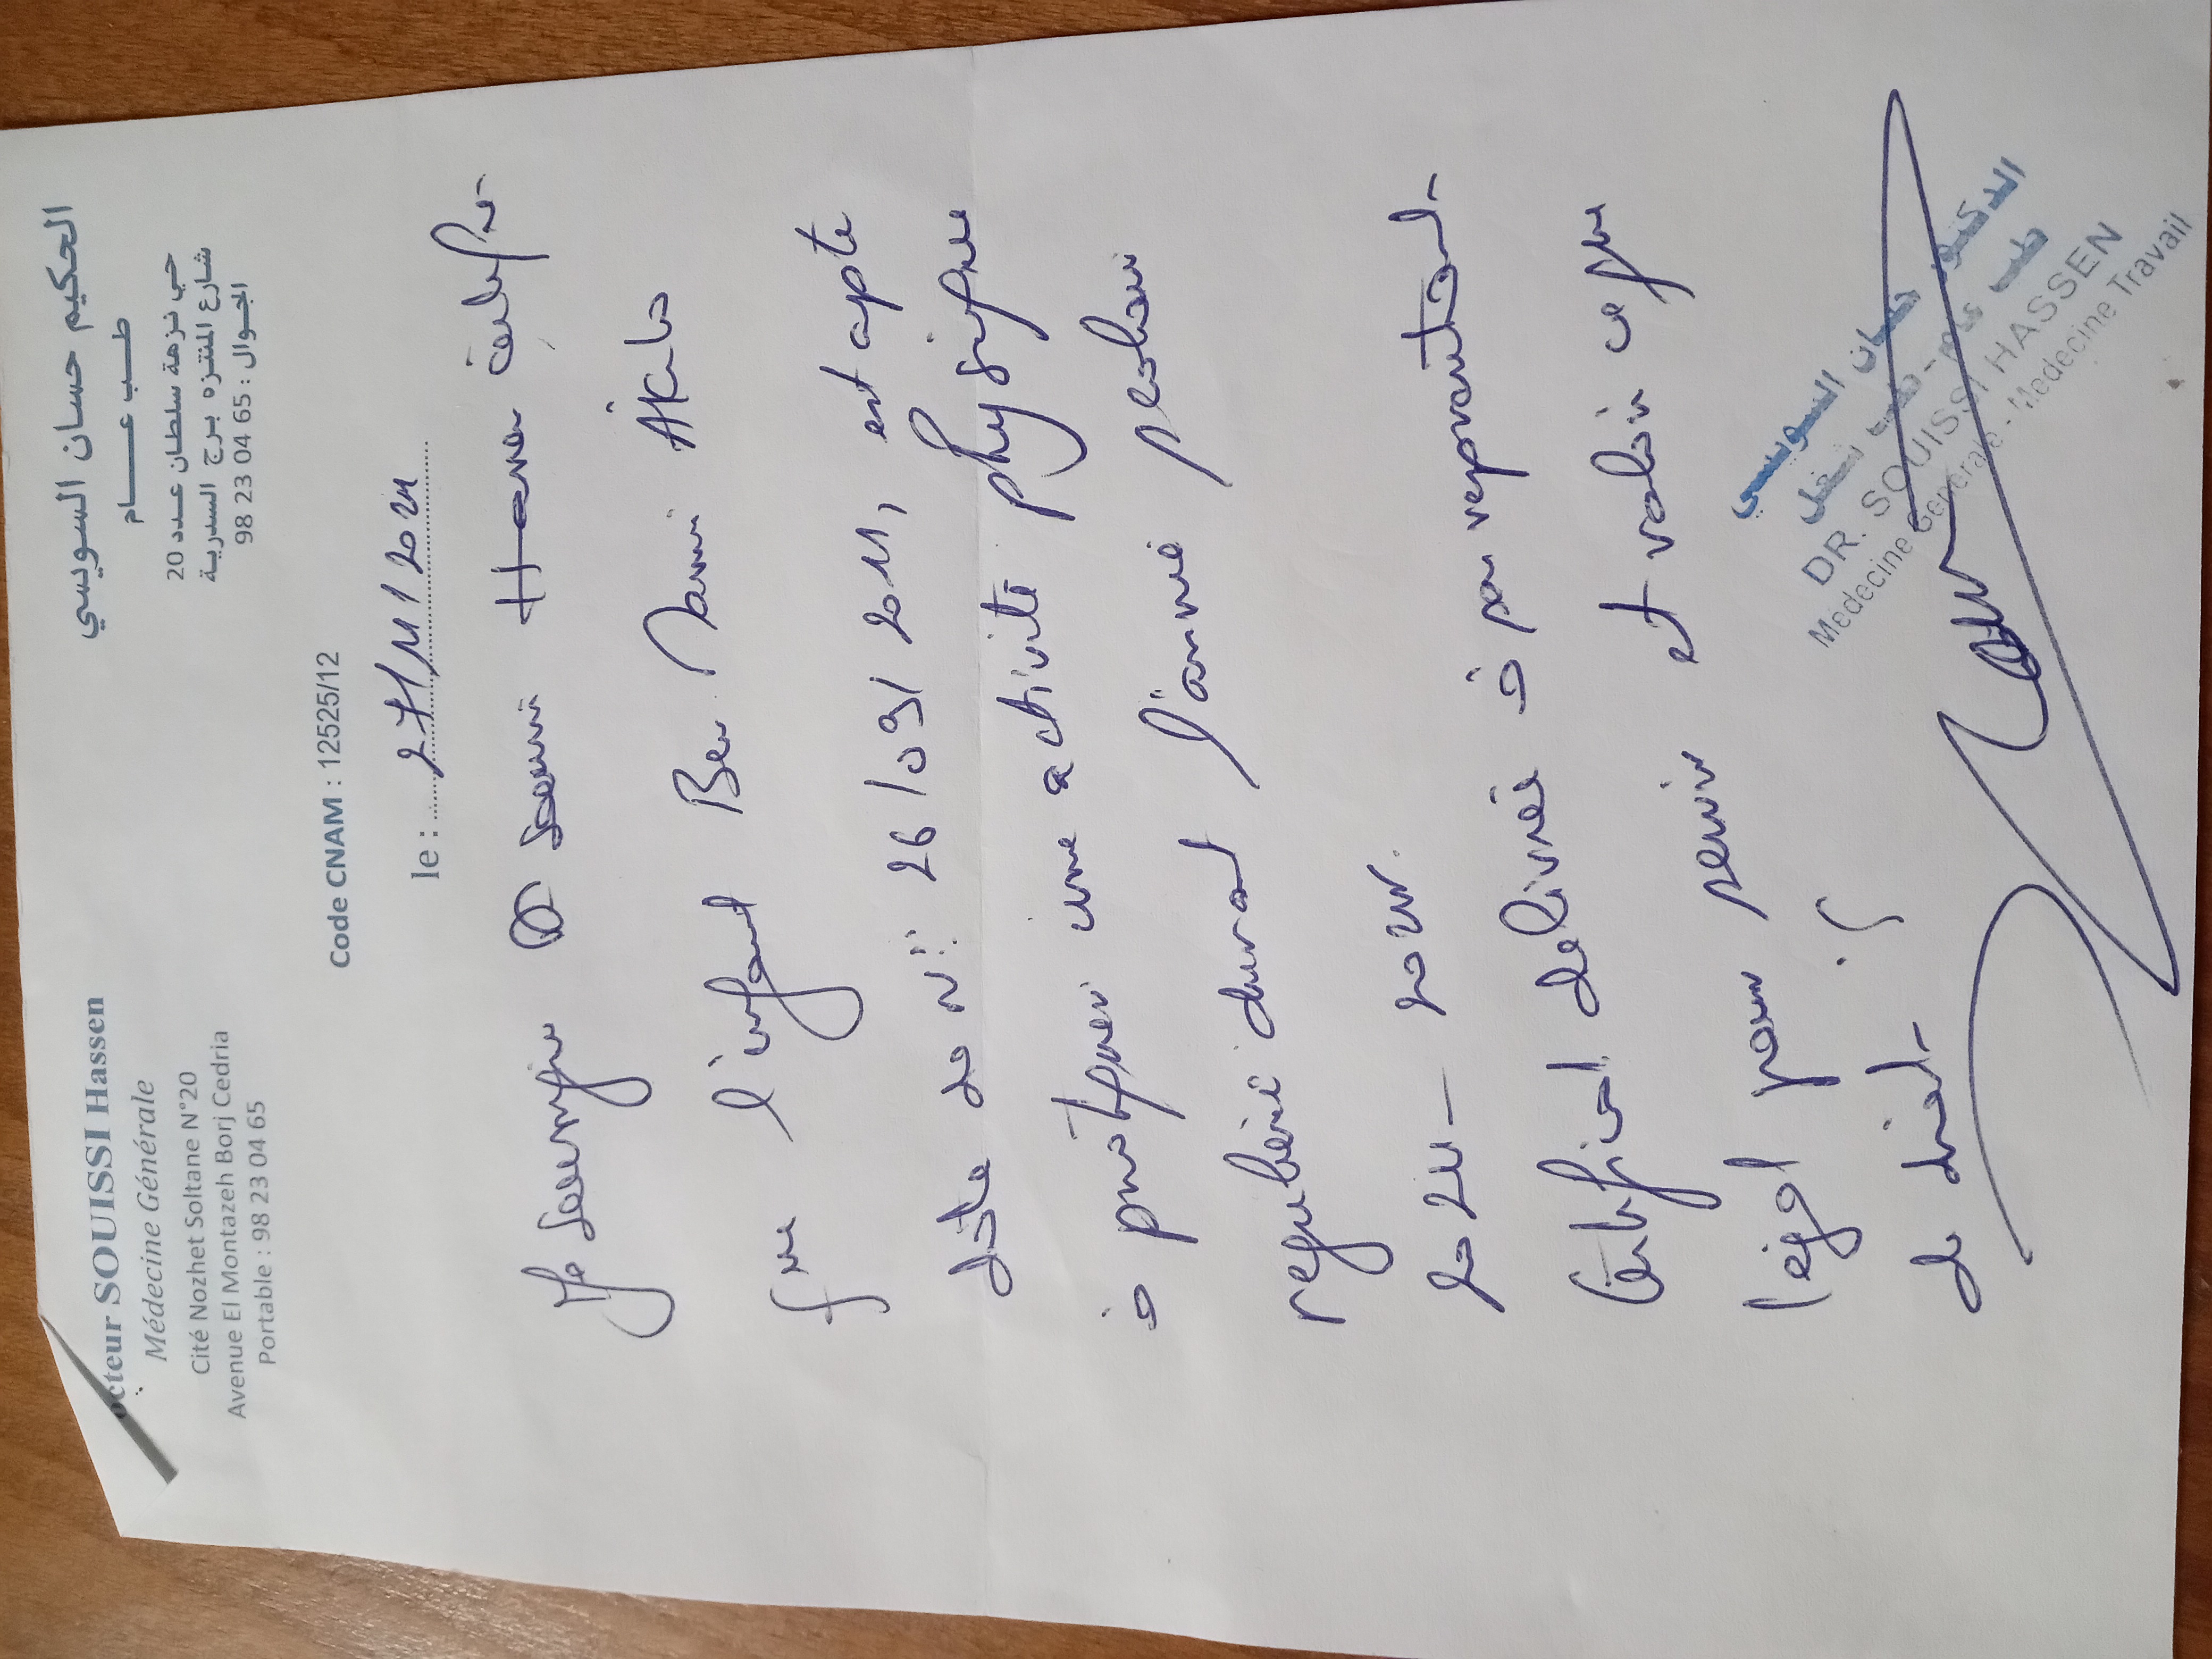 octeur SOUISSI Hassen
Médecine Générale
Cité Nozhet Soltane N°20
Avenue El Montazeh Borj Cedria
Portable : 98 23 04 65
الحكيم حسان السويسي
طب عام
حي نزهة سلطان عدد 20
شارع المنتزه برج السدرية
الجوال : 98 23 04 65
Code CNAM : 12525/12
le :
Je
que l'enfant Ben
date de N:: 26/09/2011, est apte
à pratiquer une activité physique
régulière durant l'année
Certificat délivré à
légal pour servir et valoir ce que
de droit
الدكتور حسان السويسي
طب عام - طب شغل
DR. SOUISSI HASSEN
Médecine Générale - Medecine Travail